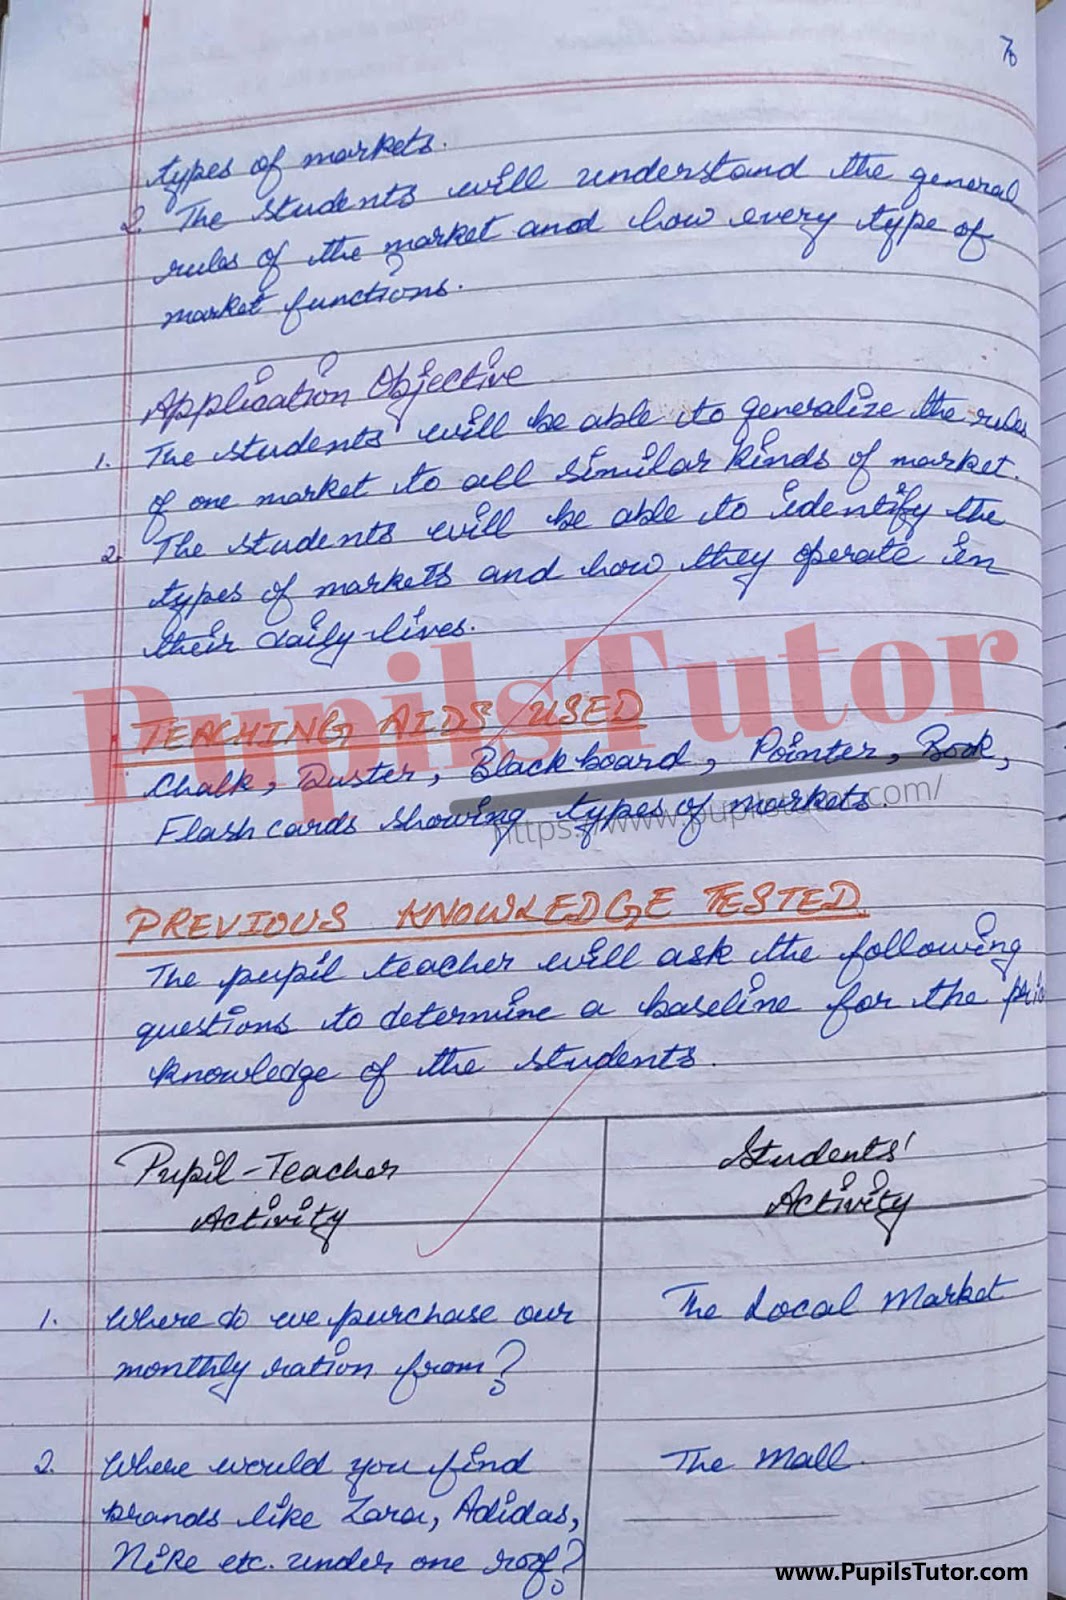 70
types of markets.
2. The students will understand the general
rules of the market and how every type of
market functions.
Application Objective
1. The students will be able to generalize the rules
of one market to all similar kinds of market.
2. The students will be able to identify the
types of markets and how they operate in
their daily-lives.
PupilsTutor
TEACHING AIDS USED
Chalk, Duster, Blackboard, Pointer, Book,
Flash cards showing types of markets.
https://www.pupilstutor.com/
PREVIOUS KNOWLEDGE TESTED
The pupil teacher will ask the following
questions to determine a baseline for the
knowledge of the students.
Pupil-Teacher Students'
Activity Activity
1. Where do we purchase our The Local Market
monthly ration from?
2. Where would you find The Mall.
brands like Zara, Adidas,
Nike etc. under one roof?
www.PupilsTutor.com